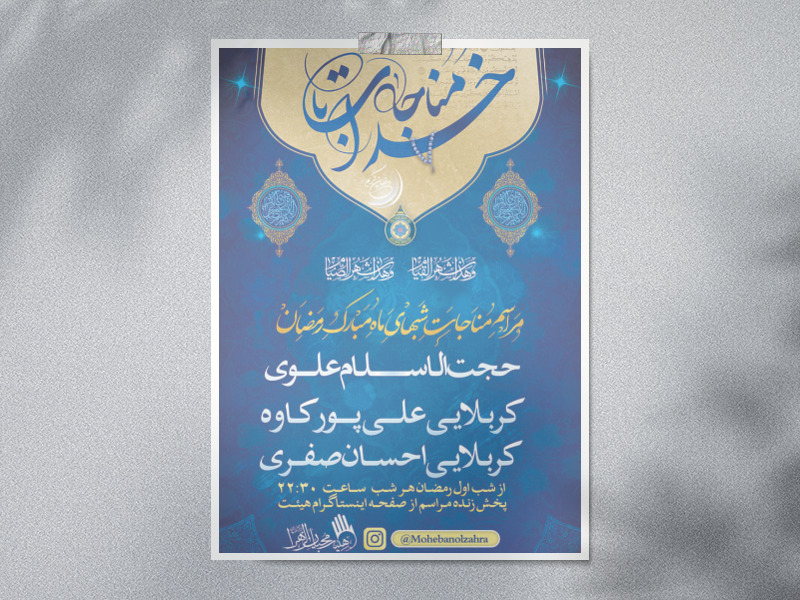 مناجات با خدا
وهذا شهر الصیام وهذا شهر القیام
مراسم مناجات شبهای ماه مبارک رمضان
حجت الاسلام علوی
کربلایی علی پورکاوه
کربلایی احسان صفری
از شب اول رمضان هر شب ساعت ۲۲:۳۰
پخش زنده مراسم از صفحه اینستاگرام هیئت
هیئت محبان الزهرا
@Mohebanolzahra